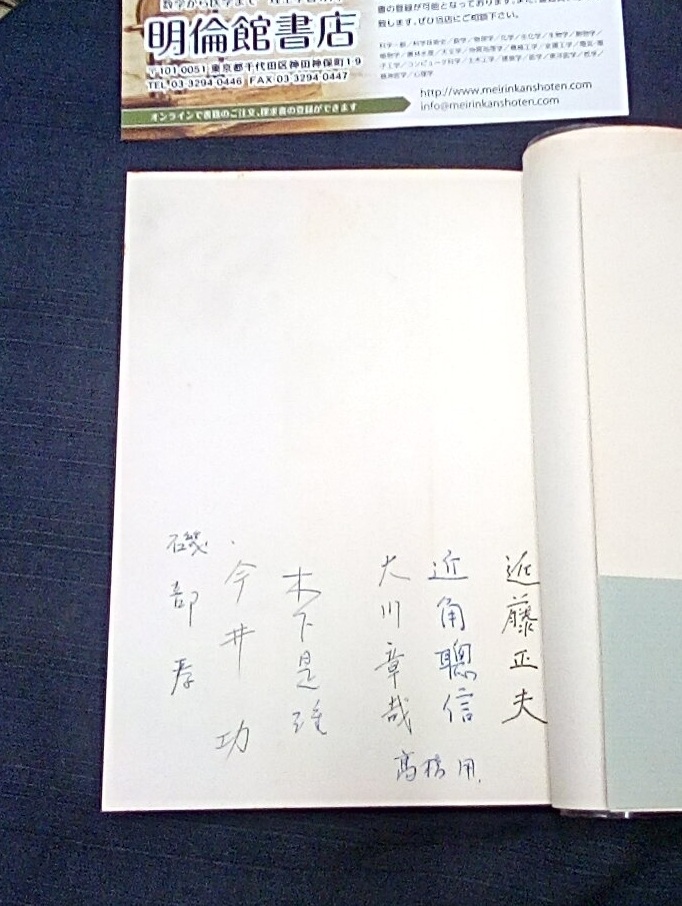 明倫館書店
〒101-0051 東京都千代田区神田神保町1-9
TEL 03-3294-0446 FAX 03-3294-0447
オンラインで書籍のご注文、探求書の登録ができます
書の登録が可能となっております。また、
致します。ぜひ当店にご相談下さい。
http://www.meirinkanshoten.com
info@meirinkanshoten.com
近藤正夫
近角聰信
大川章哉
高橋
木下是雄
今井 功
磯部孝